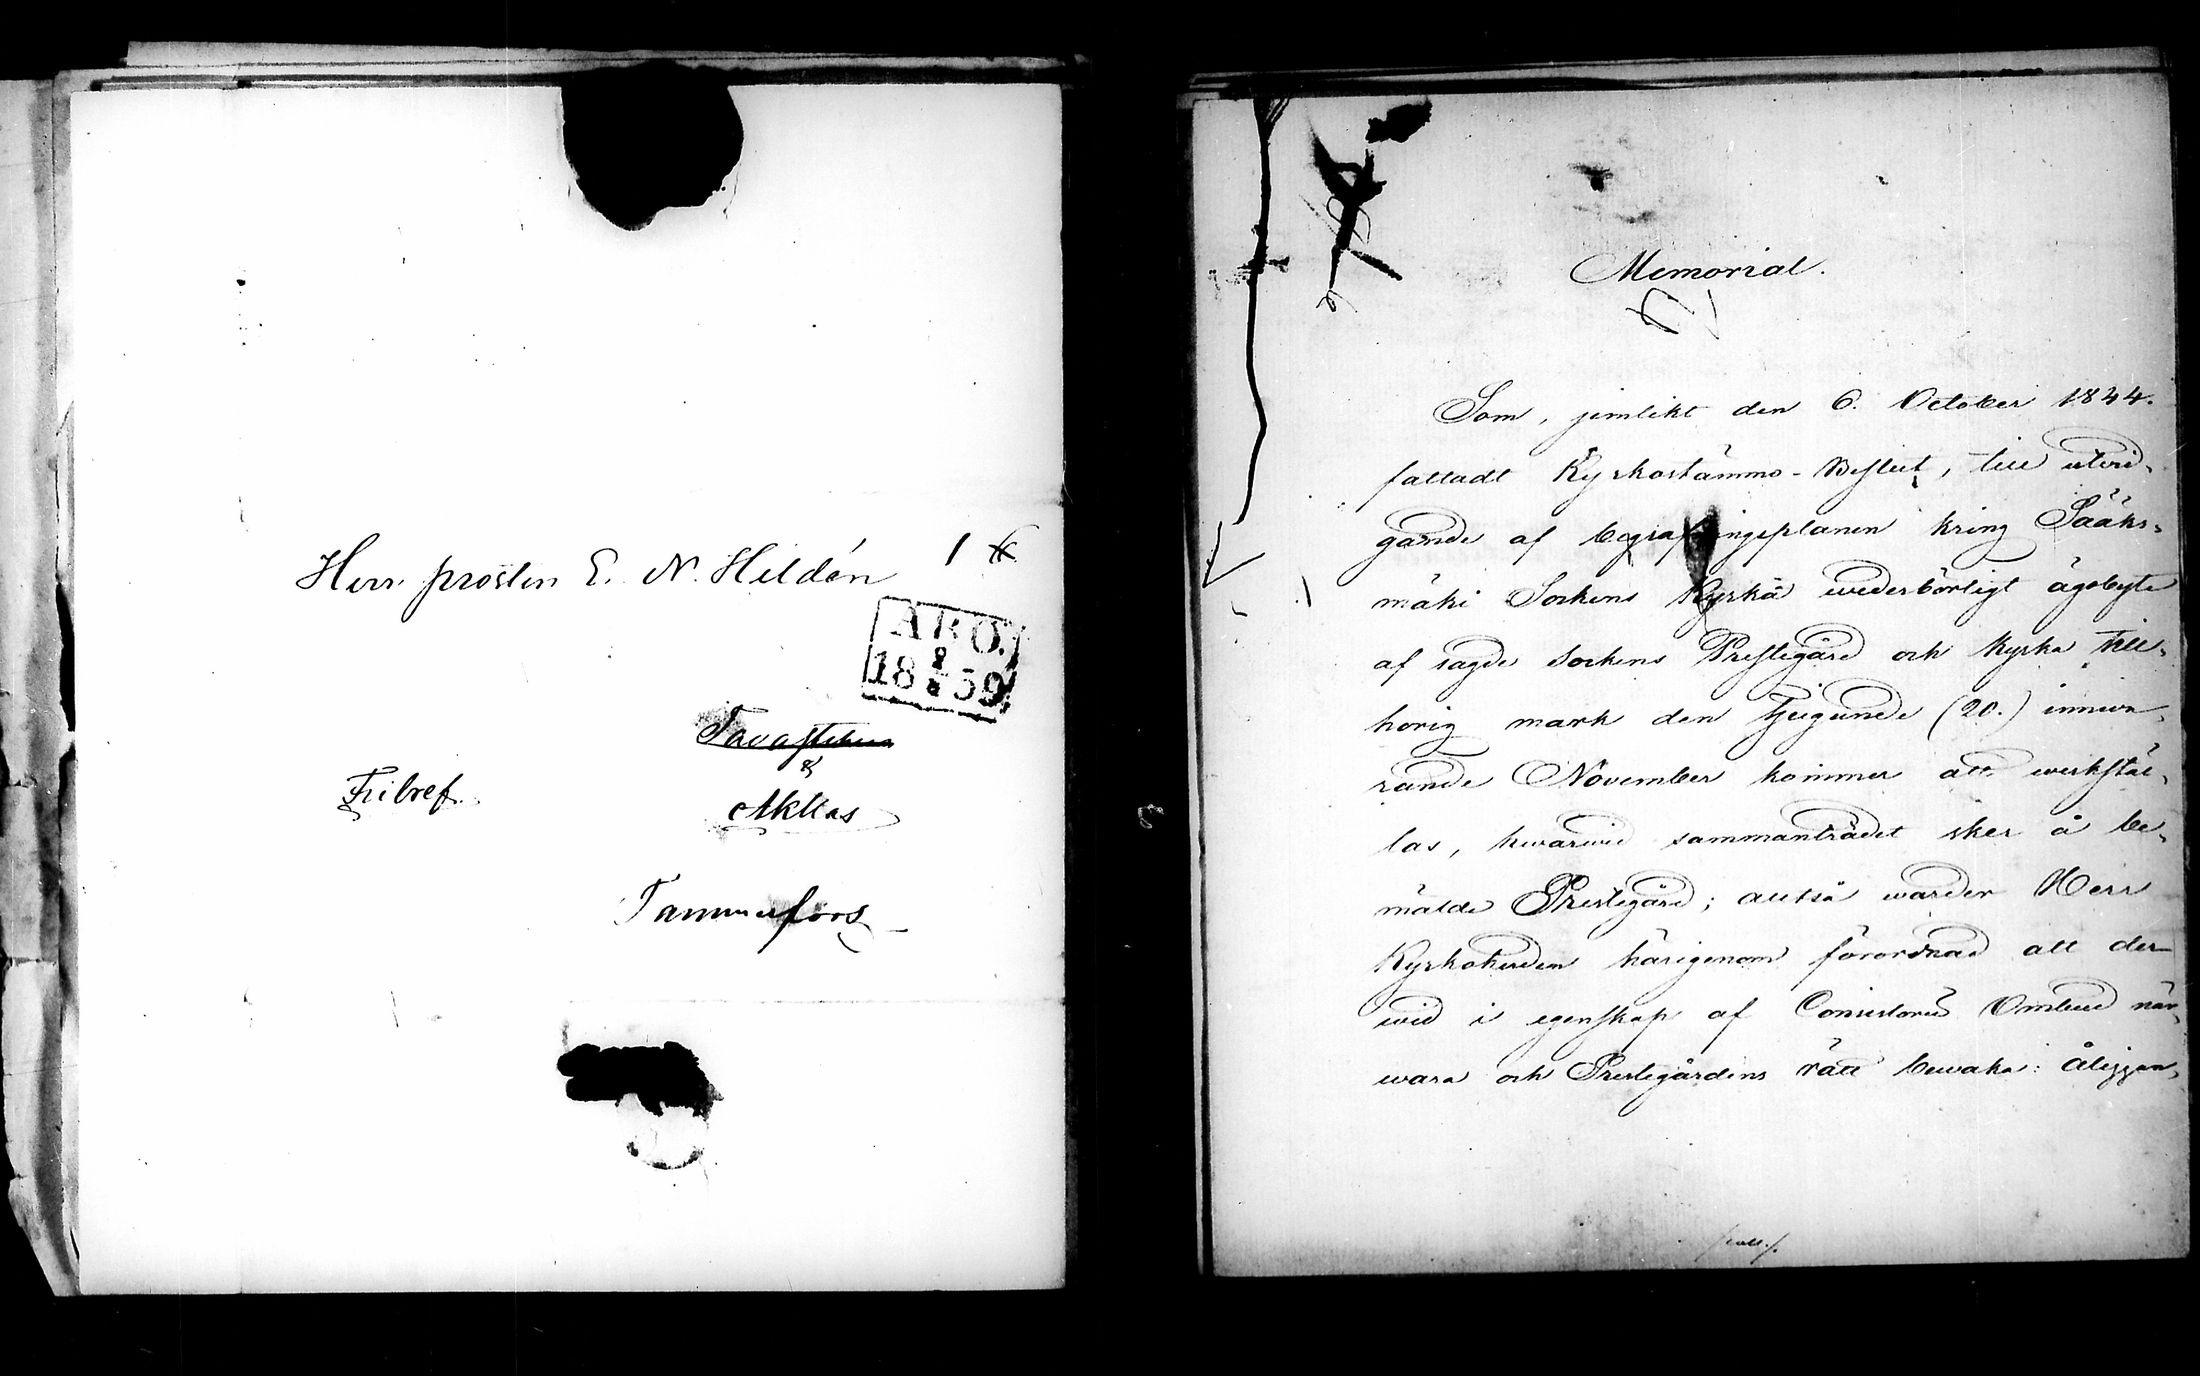 Herr prosten E. N. Heldén
ÅBO.
1859
Tavastehus
&
Fribref.
Akkas
Tammerfors
Memorial.
Som, jemlikt den 6. October 1844.
fattadt Kyrkostämmo-Beslut, till utvid-
gande af begrafningsplanen kring Sääks-
mäki Sockens Kyrka wederbörligt ägobyte
af sagde Sockens Prestegård och Kyrka till-
hörig mark den tjugunde (20.) innewa-
rande November kommer att werkstäl-
las, hwarwid sammanträdet sker å be-
mälde Prestegård; alltså warder Herr
Kyrkoherden härigenom förordnad att der
wid i egenskap af Consistorii Ombud när-
wara och Prestegårdens rätt bewaka: åliggan-